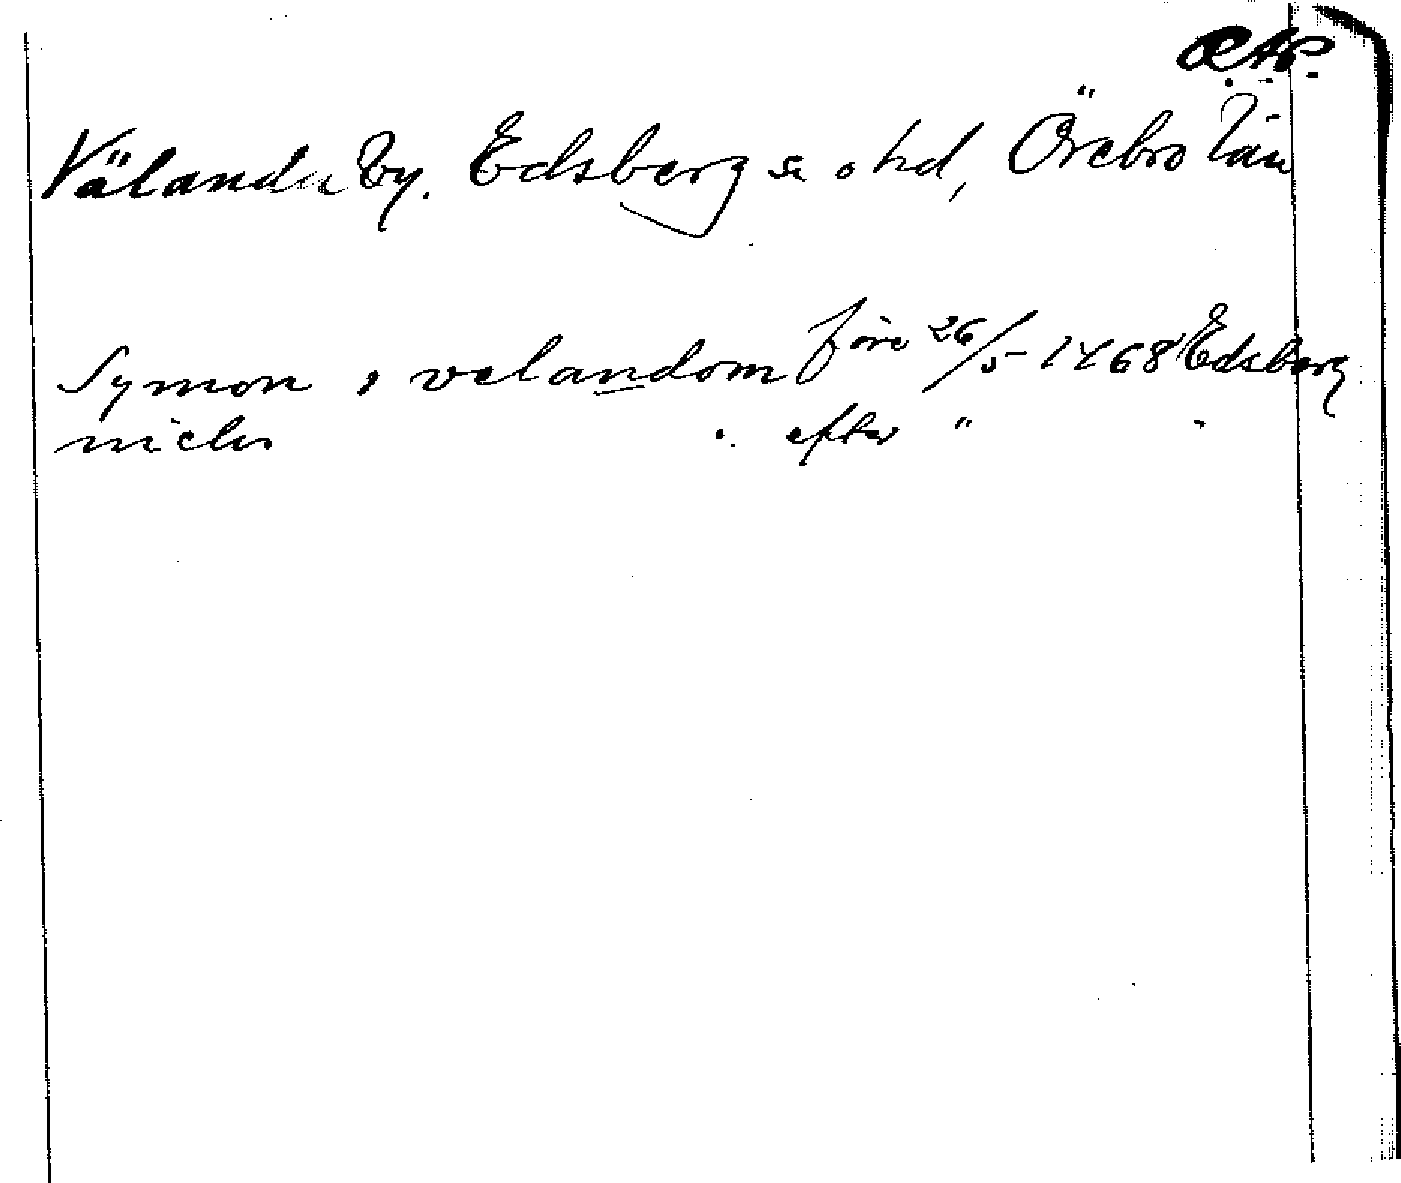 Välanda by. Edsberg sn o hd, Örebro län
Symon i velandom före 26/5 1468 Edsberg
niclis " efter " "